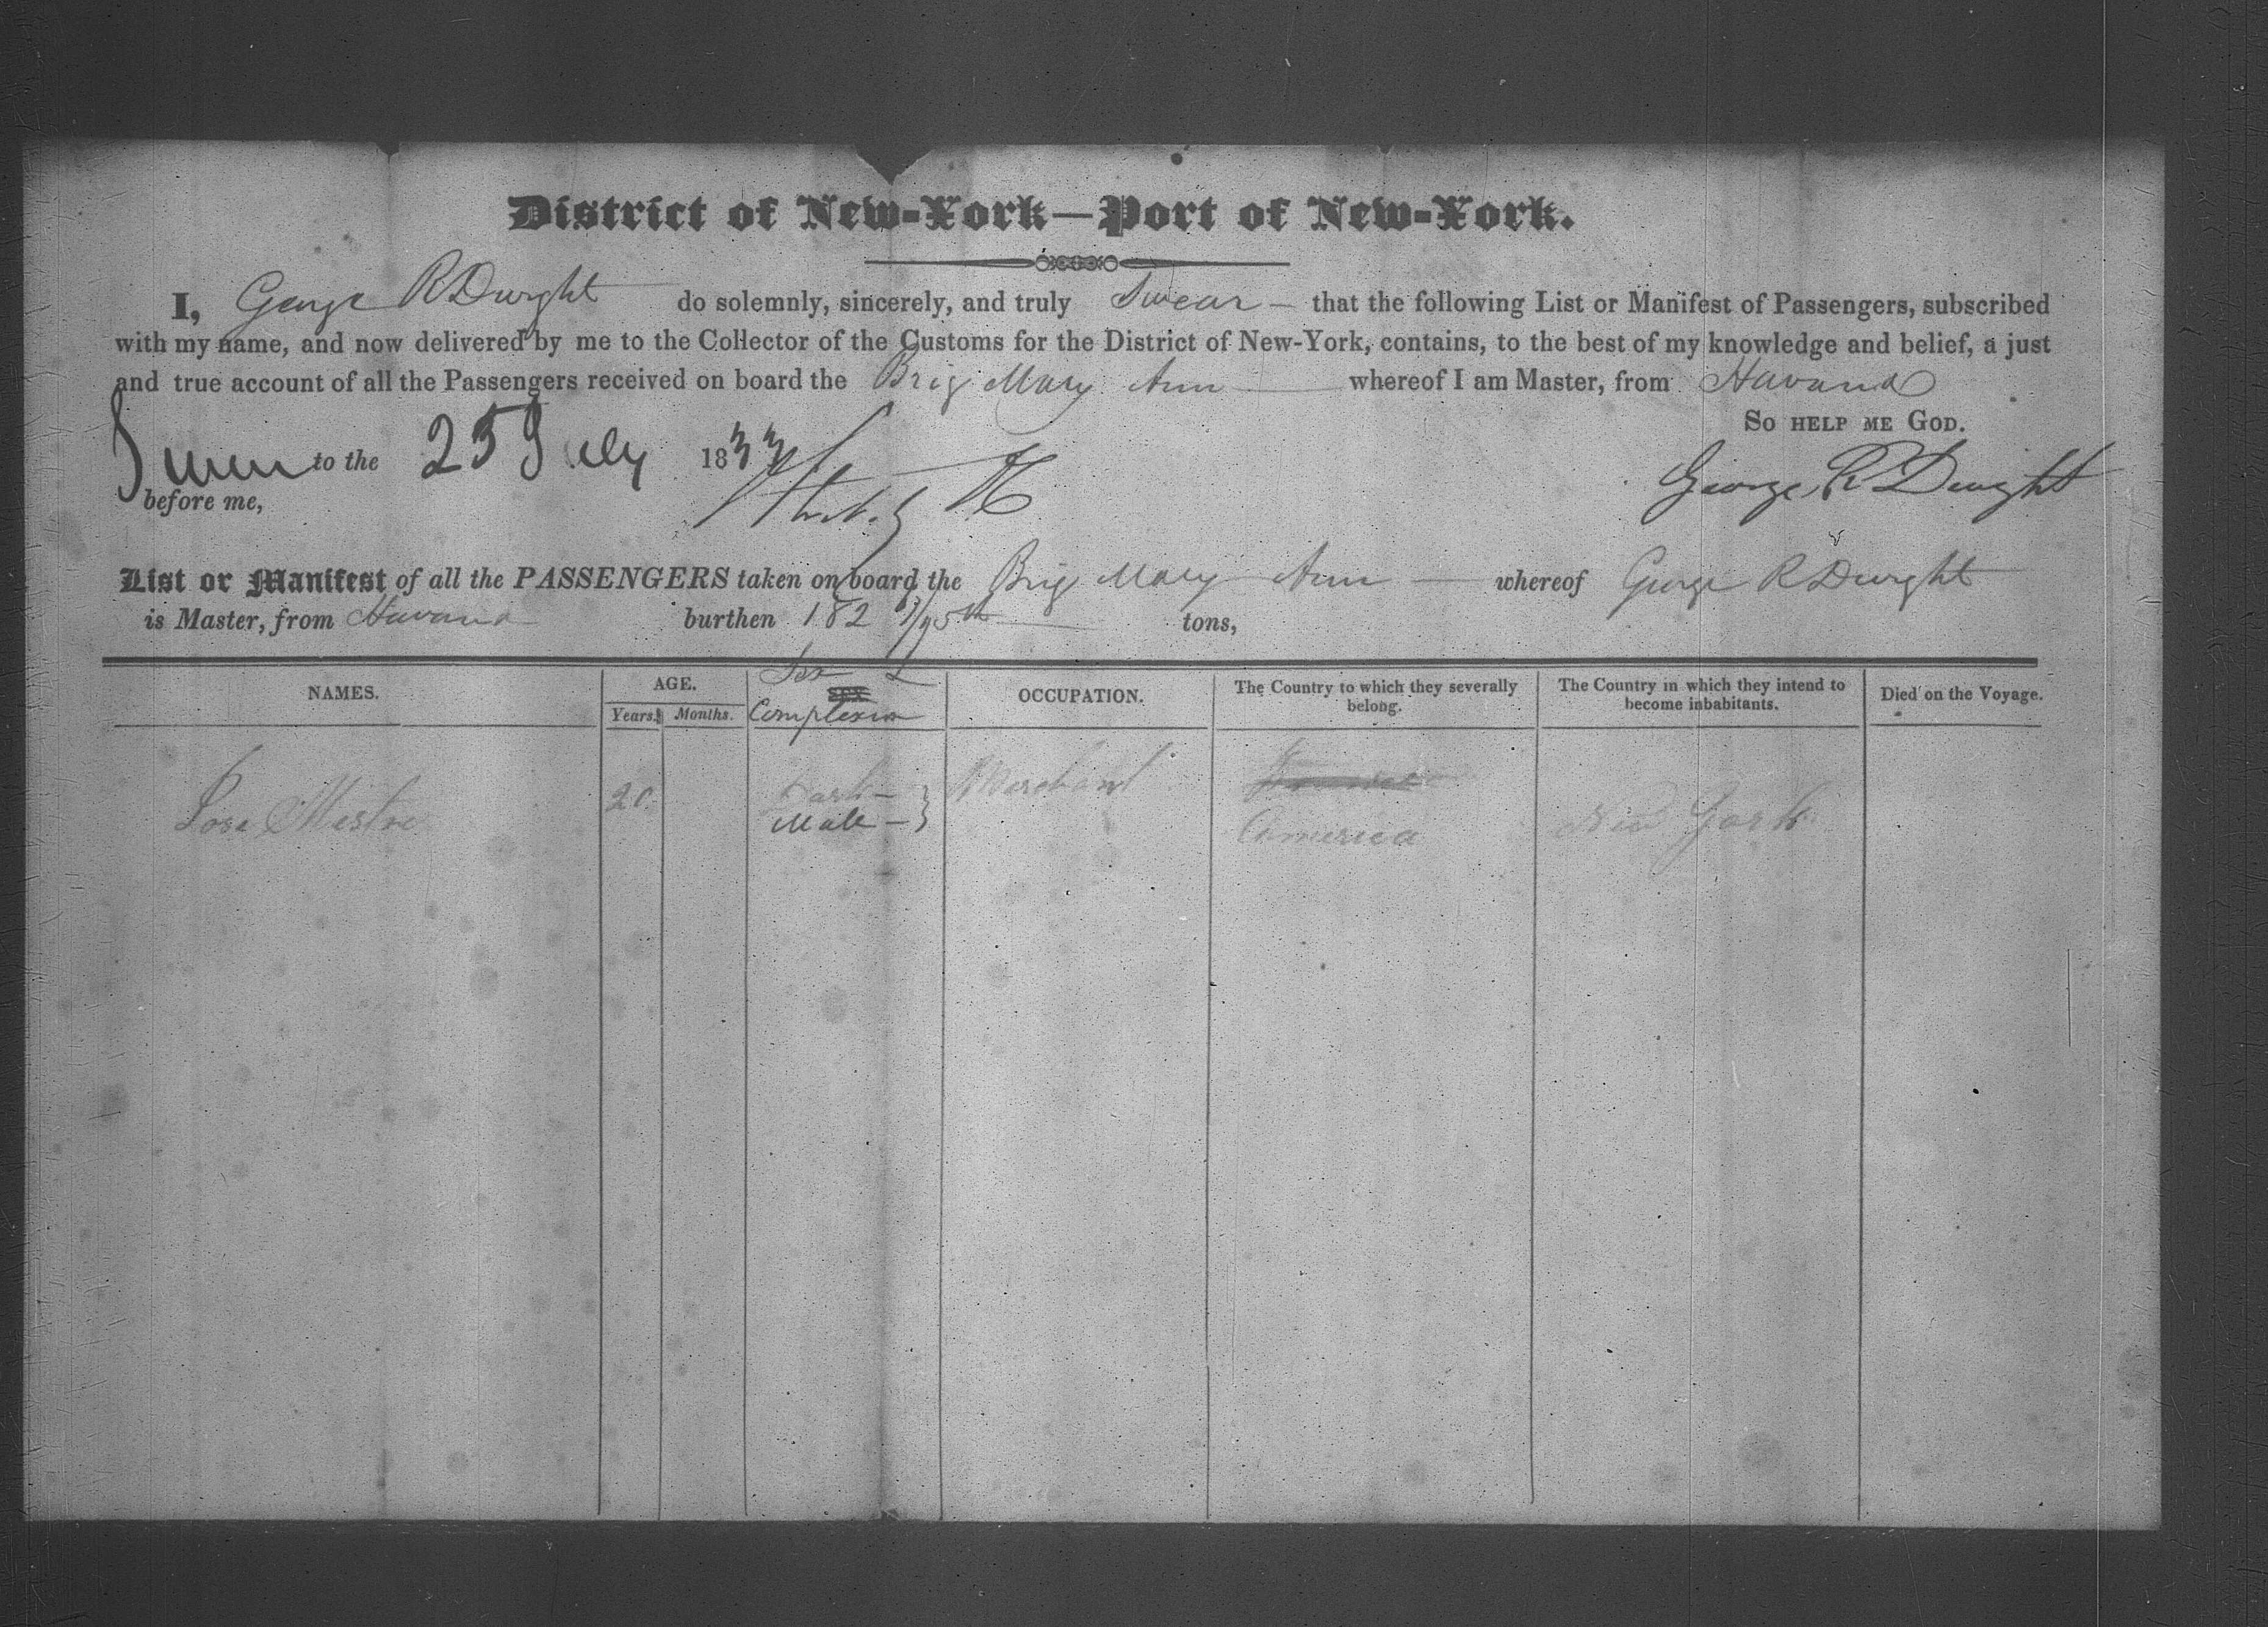 District of New-York—Port of New-York.
I, George R Dwight do solemnly, sincerely, and truly Swear — that the following List or Manifest of Passengers, subscribed
with my name, and now delivered by me to the Collector of the Customs for the District of New-York, contains, to the best of my knowledge and belief, a just
and true account of all the Passengers received on board the Brig Mary Ann whereof I am Master, from Havana
So help me God.
Sworn to the 25 July 1833
before me,
George R Dwight
List or Manifest of all the PASSENGERS taken on board the Brig Mary Ann — whereof George R Dwight
is Master, from Havana burthen 182 /95th tons,
NAMES. AGE. Sex & OCCUPATION. The Country to which they severally belong. The Country in which they intend to become inhabitants. Died on the Voyage.
Years. Months. SEX Complexion
Mestre 20 Dark — Merchant
Male — America New York